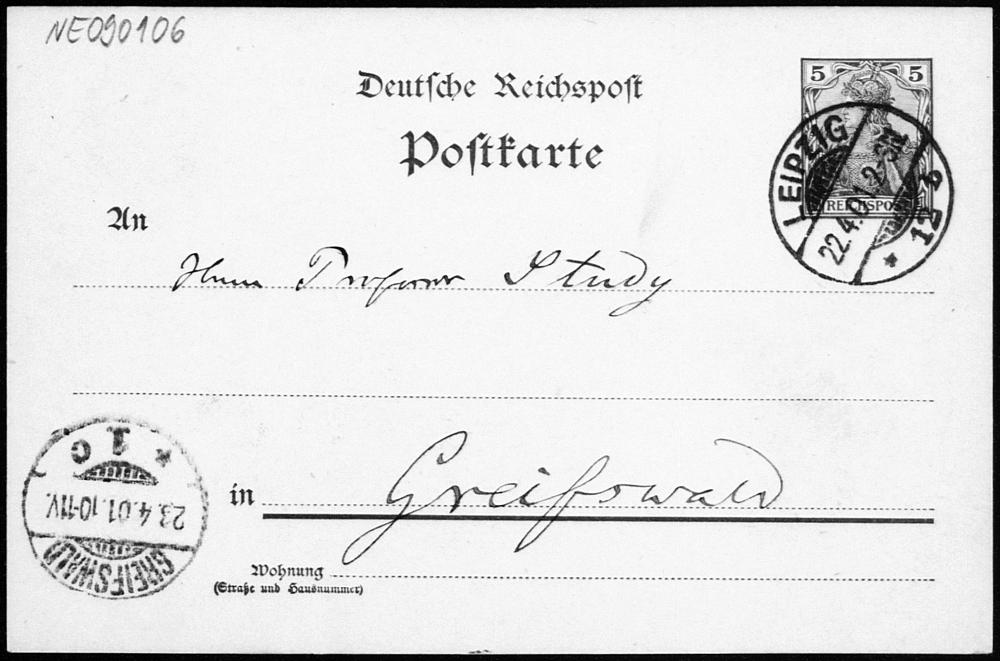 NE090106
Deutsche Reichspost
Postkarte
5 5
REICHSPOST
LEIPZIG
22.4.01.2-3N
* 12 b
An
Herrn Professor Study
* 1 c
23.4.01.10-11V.
GREIFSWALD
in Greifswald
Wohnung
(Straße und Hausnummer)